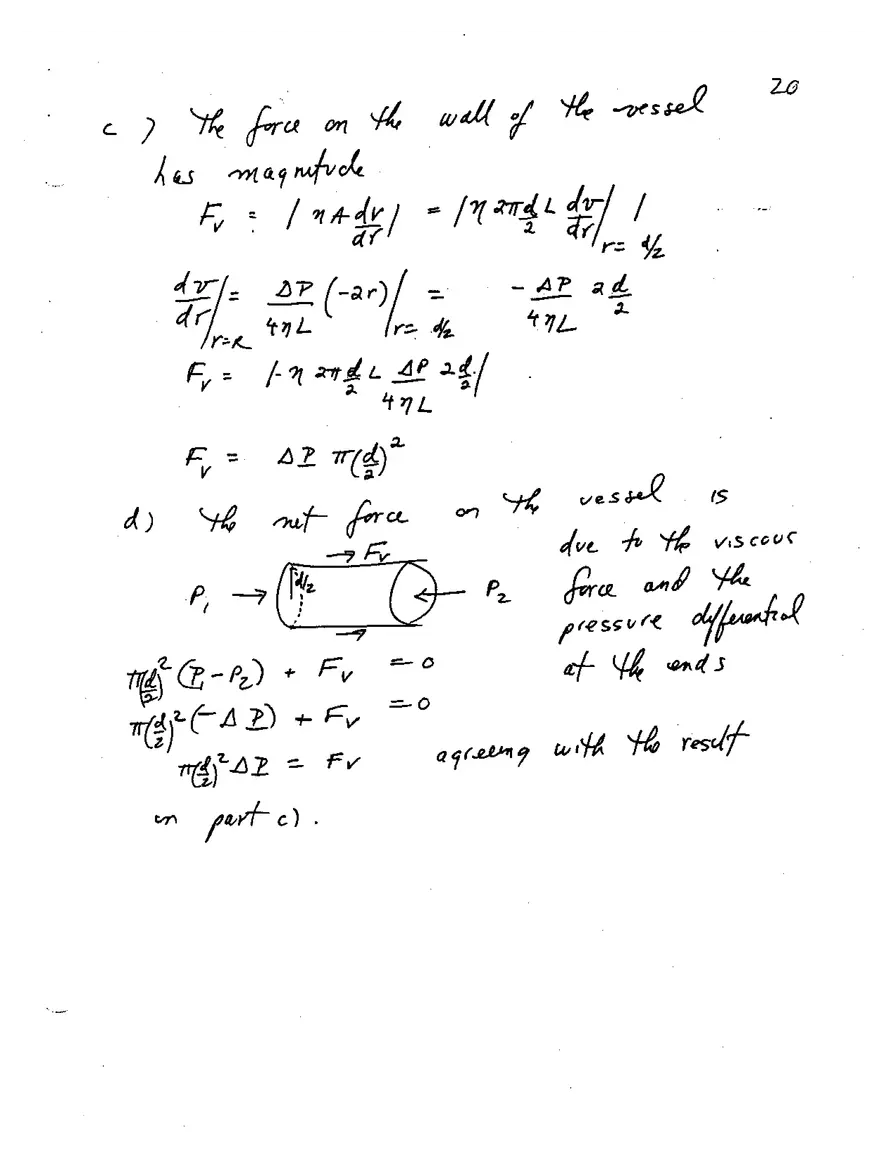 20
c ) The force on the wall of the vessel
has magnitude
F_v = | η A dv/dr | = | η 2π d/2 L dv/dr |_{r = d/2} |
dv/dr |_{r=R} = ΔP/4ηL (-2r) |_{r = d/2} = - ΔP/4ηL 2 d/2
F_v = |- η 2π d/2 L ΔP/4ηL 2 d/2 |
F_v = ΔP π(d/2)^2
d) the net force on the vessel is
due to the viscous
force and the
pressure differential
at the ends
→ F_v
P_1 → d/2 ← P_2
→
π(d/2)^2 (P_1 - P_2) + F_v = 0
π(d/2)^2 (-ΔP) + F_v = 0
π(d/2)^2 ΔP = F_v agreeing with the result
in part c) .